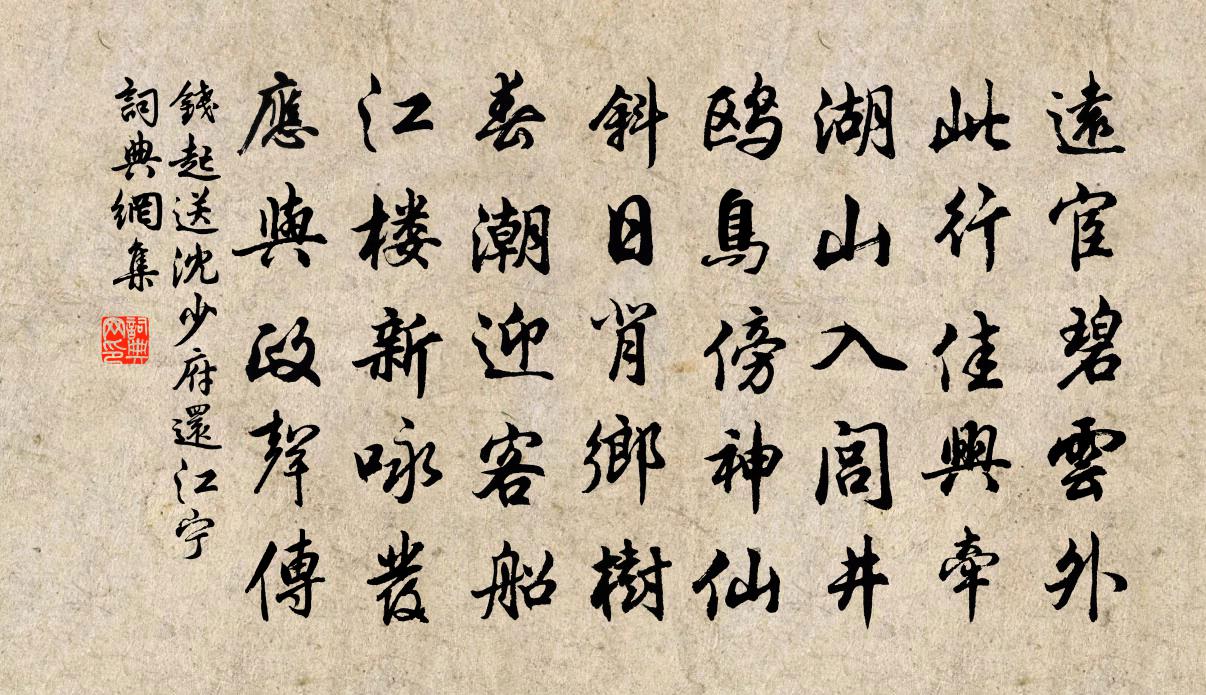 遠宦碧雲外
此行佳興牽
湖山入閭井
鷗鳥傍神仙
斜日背鄉樹
春潮迎客船
江楼新咏發
應與政聲傳
錢起送沈少府還江宁
詞典網集
詞典网印